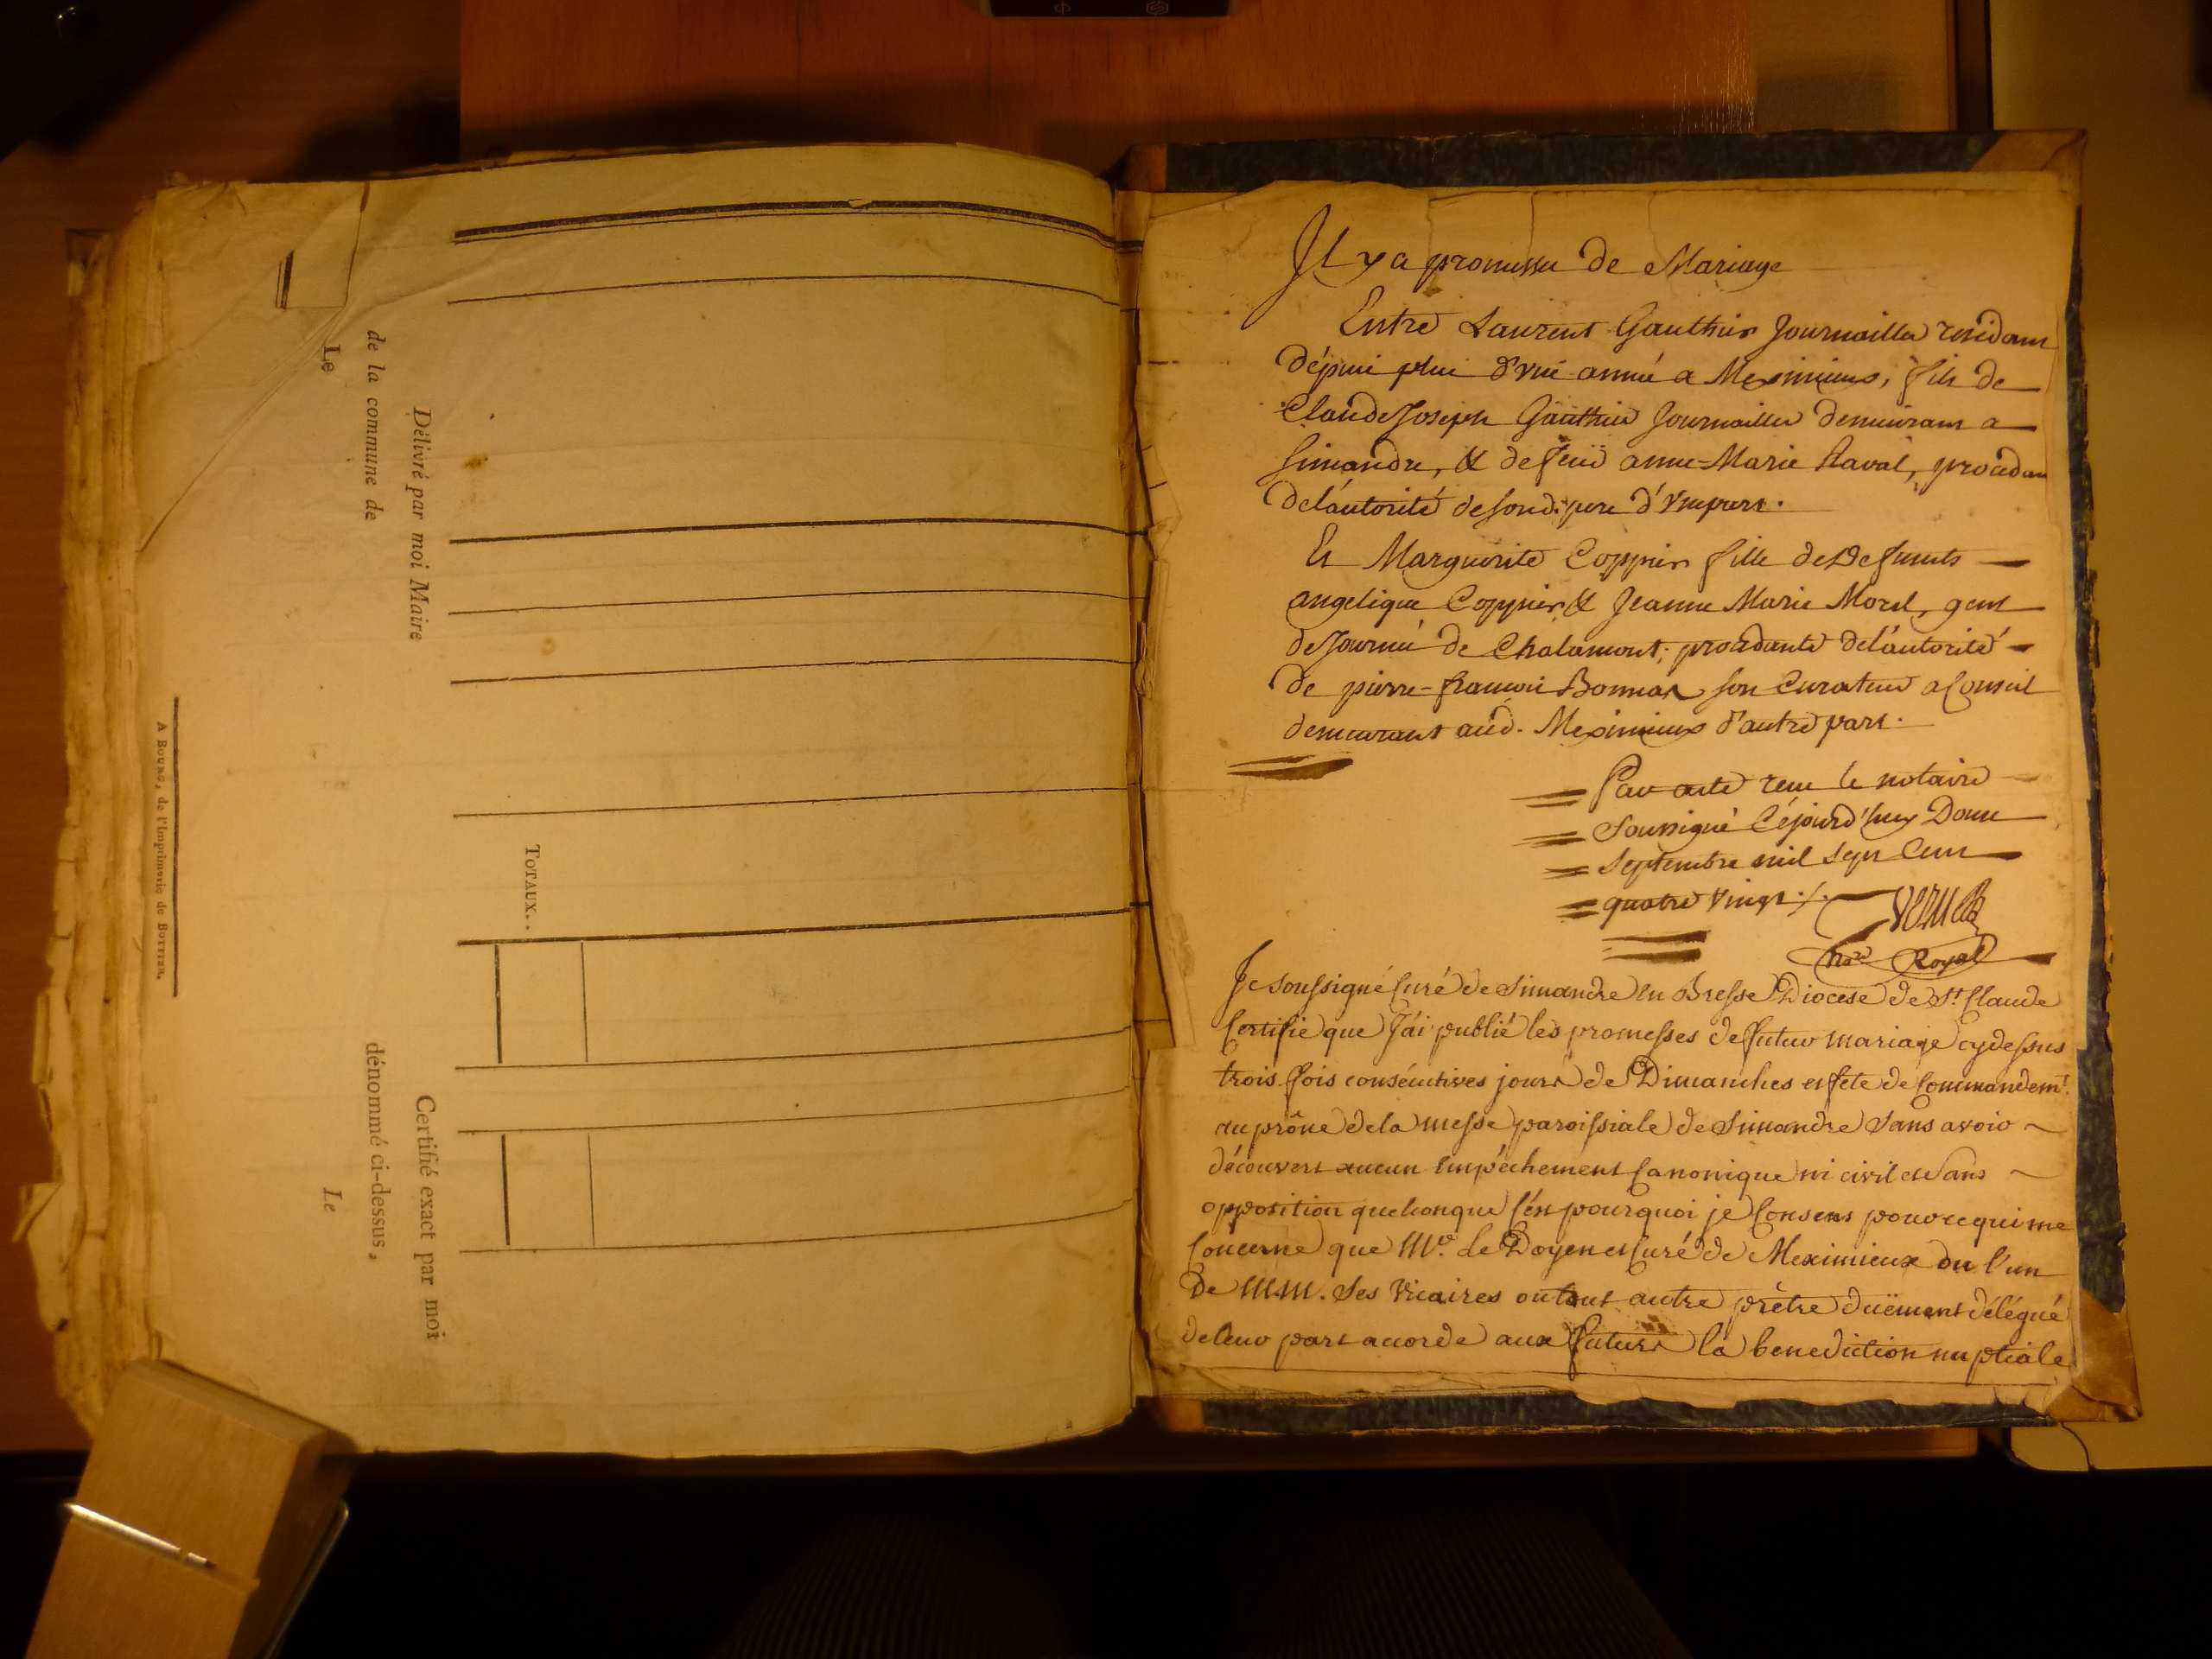 Délivré par moi Maire
de la commune de
Le
TOTAUX..
Certifié exact par moi
dénommé ci-dessus,
Le
A BOURG, de l'Imprimerie de BOTTIER.
Il y a promesse de Mariage
Entre Laurent Gauthier Journaillier residant
dépuis plus d'une année a Meximieux, fils de
Claude Joseph Gauthier Journaillier demeurant a
Simandre, & de feüe anne-Marie Raval, procedant
de l'autorité de sond. pere d'une part.
Et Marguerite Coppier fille de Defunts
angelique Coppier & Jeanne Marie Morel, gens
de Journée de Chalamont, procedante de l'autorité
de pierre-francois Bonnar son Curateur a Conseil
demeurant aud. Meximieux d'autre part.
Par acte recu le notaire
Soussigné Céjourd'huy Douze
Septembre mil sept Cent
quatre vingt
Vernet
Nore Royal
Je soussigné Curé de Simandre en Bresse Diocese de St Claude
Certifie que J'ai publié les promesses de futur mariage cy dessus
trois fois consécutives jours de Dimanches et fete de Commandemt
au prône de la messe paroissiale de Simandre Sans avoir
découvert aucun Empéchement Canonique ni civil et Sans
opposition quelconque C'est pourquoi je Consens pour ce qui me
Concerne que Mr. le Doyen et Curé de Meximieux ou l'un
De M.M. Ses Vicaires ou tout autre prètre duëment délégué
de leur part accorde aux futurs la benediction nuptiale